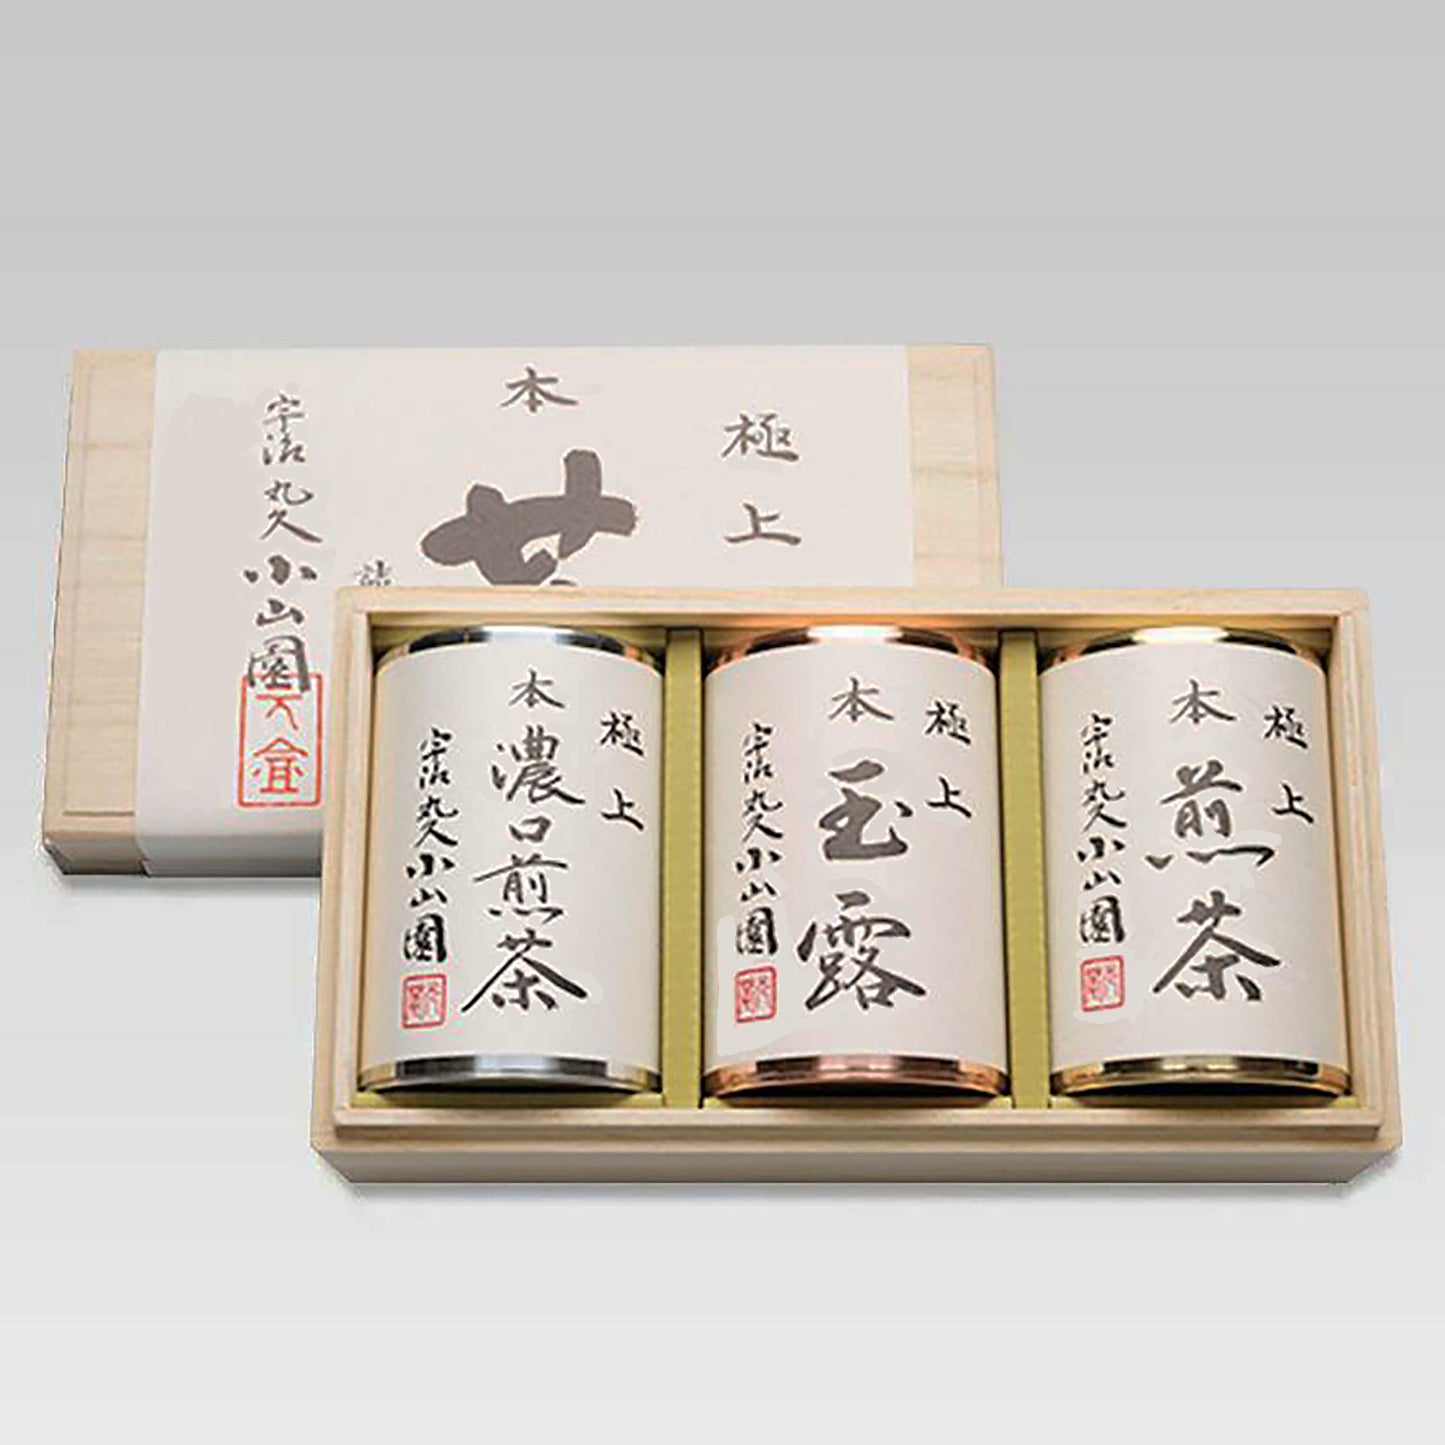 極上
本
茶
宇治丸久小山園
極上
本濃口煎茶
宇治丸久小山園
極上
本玉露
宇治丸久小山園
極上
本煎茶
宇治丸久小山園